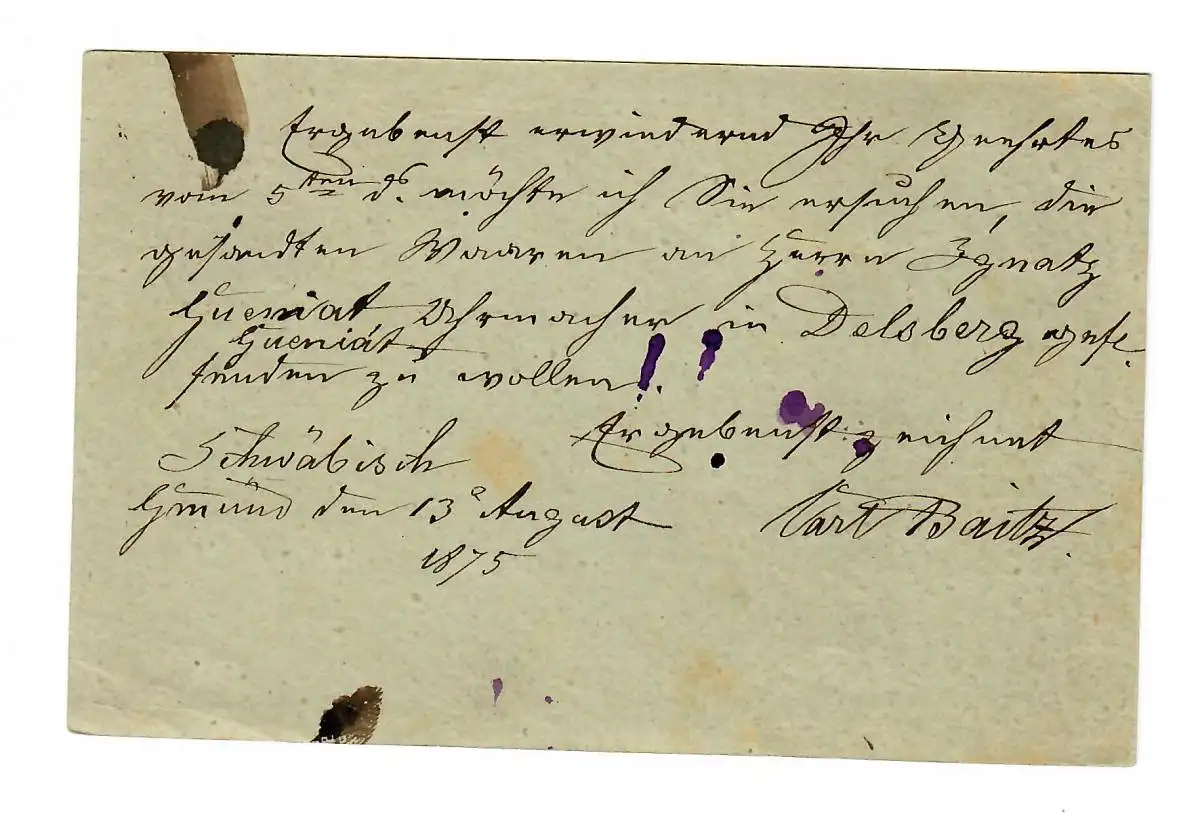 Ergebenst erwiedernd Ihr Geehrtes
vom 5ten ds. möchte ich Sie ersuchen, die
gesandten Waaren an Herrn Ignatz
Gueniat Uhrmacher in Delsberg gefl.
Gueniát
senden zu wollen!
Ergebenst zeichnet
Schwäbisch
Gmünd den 13 August
1875
Carl Baitz.